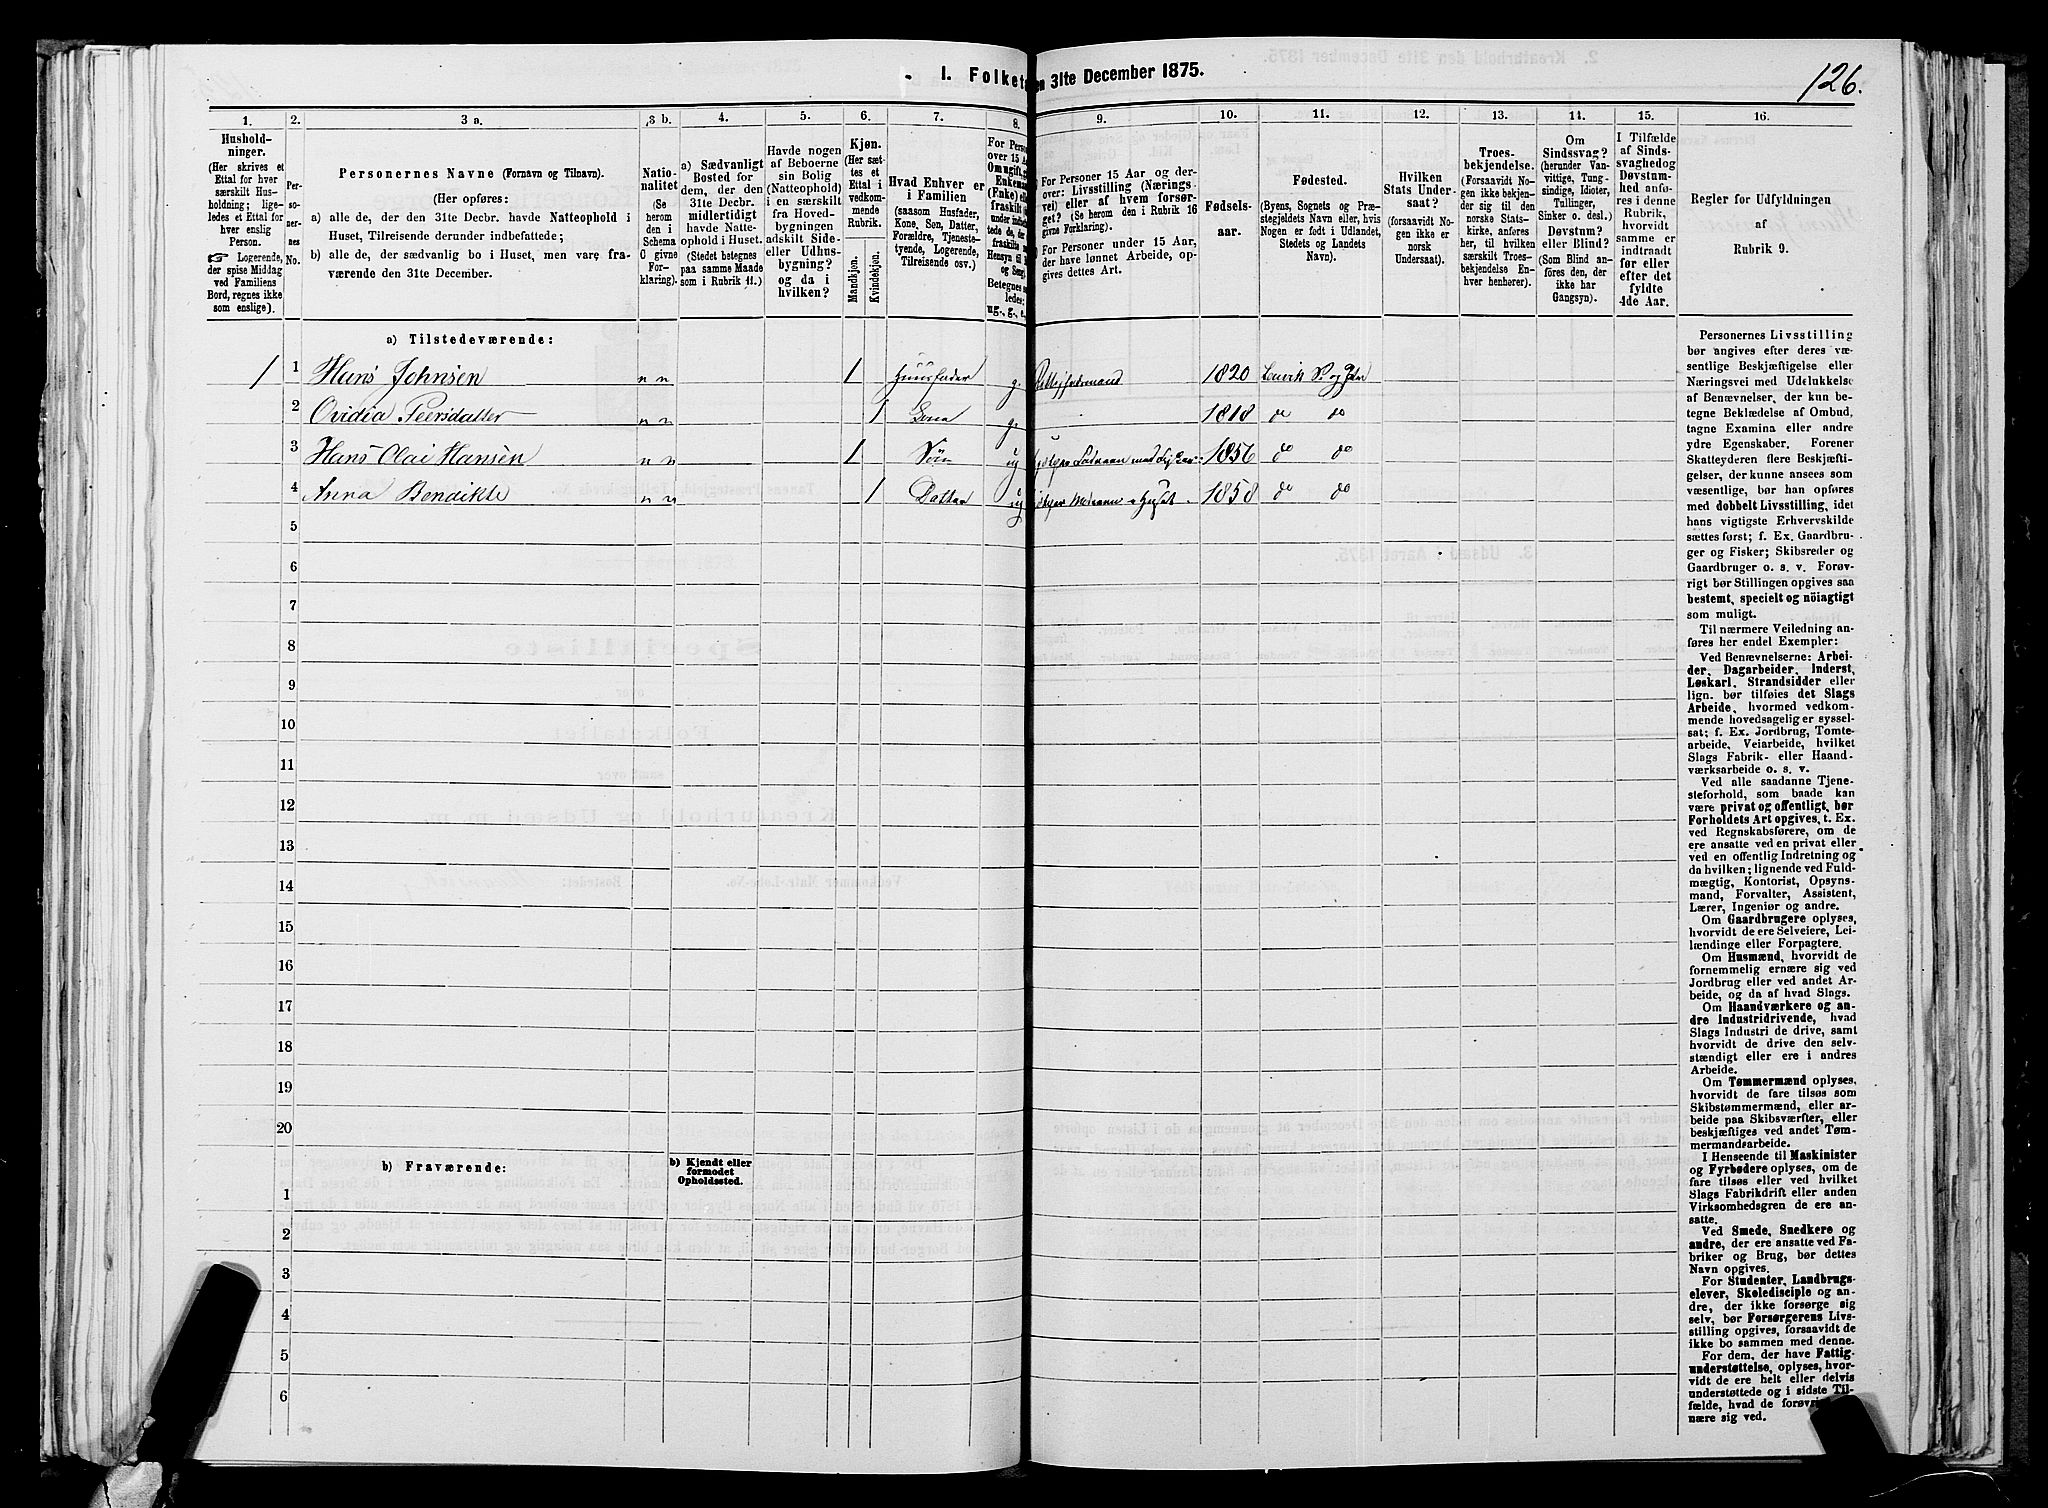 1. Folket
en 31te December 1875.
126.
1.
Hushold-
ninger.
(Her skrives et
Ettal for hver
særskilt Hus-
holdning; lige-
ledes et Ettal for
hver enslig
Person.
☞ Logerende,
der spise Middag
ved Familiens
Bord, regnes ikke
som enslige).
2.
Per-
so-
ner-
nes
No.
3 a.
Personernes Navne (Fornavn og Tilnavn).
(Her opføres:
a) alle de, der den 31te Decbr. havde Natteophold i
Huset, Tilreisende derunder indbefattede;
b) alle de, der sædvanlig bo i Huset, men vare fra-
værende den 31te December.
3 b.
Natio-
nalitet
(Se
herom
den i
Schema
C givne
For-
klaring).
4.
a) Sædvanligt
Bosted for
dem, der den
31te Decbr.
midlertidigt
havde Natte-
ophold i Huset.
(Stedet betegnes
paa samme Maade
som i Rubrik 11.)
5.
Havde nogen
af Beboerne
sin Bolig
(Natteophold)
i en særskilt
fra Hoved-
bygningen
adskilt Side-
eller Udhus-
bygning?
og da i
hvilken?
6.
Kjøn.
(Her sæt-
tes et
Ettal i
vedkom-
mende
Rubrik.
Mandkjøn.
Kvindekjøn.
7.
Hvad Enhver er
i Familien
(saasom Husfader,
Kone, Søn, Datter,
Forældre, Tjeneste-
tyende, Logerende,
Tilreisende osv.)
8.
For Person
over 15 Aar
Om ugift, g
Enkema
(Enke) ell
fraskilt
Betegnes
ledes:
ug., g., e.
9.
For Personer 15 Aar og der-
over: Livsstilling (Nærings-
vei) eller af hvem forsør-
get? (Se herom den i Rubrik 16
givne Forklaring).
For Personer under 15 Aar,
der have lønnet Arbeide, op-
gives dettes Art.
10.
Fødsels-
aar.
11.
Fødested.
(Byens, Sognets og Præ-
stegjeldets Navn eller, hvis
Nogen er født i Udlandet,
Stedets og Landets
Navn).
12.
Hvilken
Stats Under-
saat?
(forsaavidt No-
gen ikke er
norsk
Undersaat).
13.
Troes-
bekjendelse.
(Forsaavidt No-
gen ikke bekjen-
der sig til den
norske Stats-
kirke, anføres
her, til hvilken
særskilt Troes-
bekjendelse En-
hver henhører).
14.
Om
Sindssvag?
(herunder Van-
vittige, Tung-
sindige, Idioter,
Tullinger,
Sinker o. desl.)
Døvstum?
eller Blind?
(Som Blind an-
føres den, der
ikke har
Gangsyn).
15.
I Tilfælde
af Sinds-
svaghedog
Døvstum-
hed anfø-
res i denne
Rubrik,
hvorvidt
samme er
indtraadt
før eller
efter det
fyldte
4de Aar.
16.
Regler for Udfyldningen
af
Rubrik 9.
a) Tilstedeværende:
1 1 Hans Johnsen n n 1 Huusfader g. 1820
2 Ovidia Peersdatter n n 1 Kona g. 1818 do do
3 Hans Olai Hansen n n 1 Søn ug 1856 do do
4 Anna Bendikte n n 1 Datter ug 1858 do do
5
6
7
8
9
10
11
12
13
14
15
16
17
18
19
20
b) Fraværende:
b) Kjendt eller
formodet
Opholdssted.
1
2
3
4
5
6
Personernes Livsstilling
bør angives efter deres væ-
sentlige Beskjæftigelse eller
Næringsvei med Udelukkelse
af Benævnelser, der kun be-
tegne Beklædelse af Ombud,
tagne Examina eller andre
ydre Egenskaber. Forener
Skatteyderen flere Beskjæfti-
gelser, der kunne ansees som
væsentlige, bør han opføres
med dobbelt Livsstilling, idet
hans vigtigste Erhvervskilde
sættes først; f. Ex. Gaardbru-
ger og Fisker; Skibsreder og
Gaardbruger o. s. v. Forøv-
rigt bør Stillingen opgives saa
bestemt, specielt og nöiagtigt
som muligt.
Til nærmere Veiledning an-
føres her endel Exempler:
Ved Benævnelserne: Arbei-
der, Dagarbeider, Inderst,
Løskarl, Strandsidder eller
lign. bør tilføies det Slags
Arbeide, hvormed vedkom-
mende hovedsagelig er syssel-
sat; f. Ex. Jordbrug, Tomte-
arbeide, Veiarbeide, hvilket
Slags Fabrik- eller Haand-
værksarbeide o. s. v.
Ved alle saadanne Tjene-
steforhold, som baade kan
være privat og offentligt, bør
Forholdets Art opgives, t. Ex.
ved Regnskabsførere, om de
ere ansatte ved en privat eller
ved en offentlig Indretning og
da hvilken; lignende ved Fuld-
mægtig, Kontorist, Opsyns-
mand, Forvalter, Assistent,
Lærer, Ingeniør og andre.
Om Gaardbrugere oplyses,
hvorvidt de ere Selveiere, Lei-
lændinge eller Forpagtere.
Om Husmænd, hvorvidt de
fornemmelig ernære sig ved
Jordbrug eller ved andet Ar-
beide, og da af hvad Slags.
Om Haandværkere og an-
dre Industridrivende, hvad
Slags Industri de drive, samt
hvorvidt de drive den selv-
stændigt eller ere i andres
Arbeide.
Om Tømmermænd oplyses,
hvorvidt de fare tilsøs som
Skibstømmermænd, eller ar-
beide paa Skibsværfter, eller
beskjæftiges ved andet Tøm-
mermandsarbeide.
I Henseende til Maskinister
og Fyrbødere oplyses, om de
fare tilsøs eller ved hvilket
Slags Fabrikdrift eller anden
Virksomhedsgren de ere an-
satte.
Ved Smede, Snedkere og
andre, der ere ansatte ved Fa-
briker og Brug, bør dettes
Navn opgives.
For Studenter, Landbrugs-
elever, Skoledisciple og an-
dre, der ikke forsørge sig
selv, bør Forsørgerens Livs-
stilling opgives, forsaavidt de
ikke bo sammen med denne.
For dem, der have Fattig-
understøttelse, oplyses, hvor-
vidt de ere helt eller delvis
understøttede og i sidste Til-
fælde, hvad de forøvri
nære sig ved.